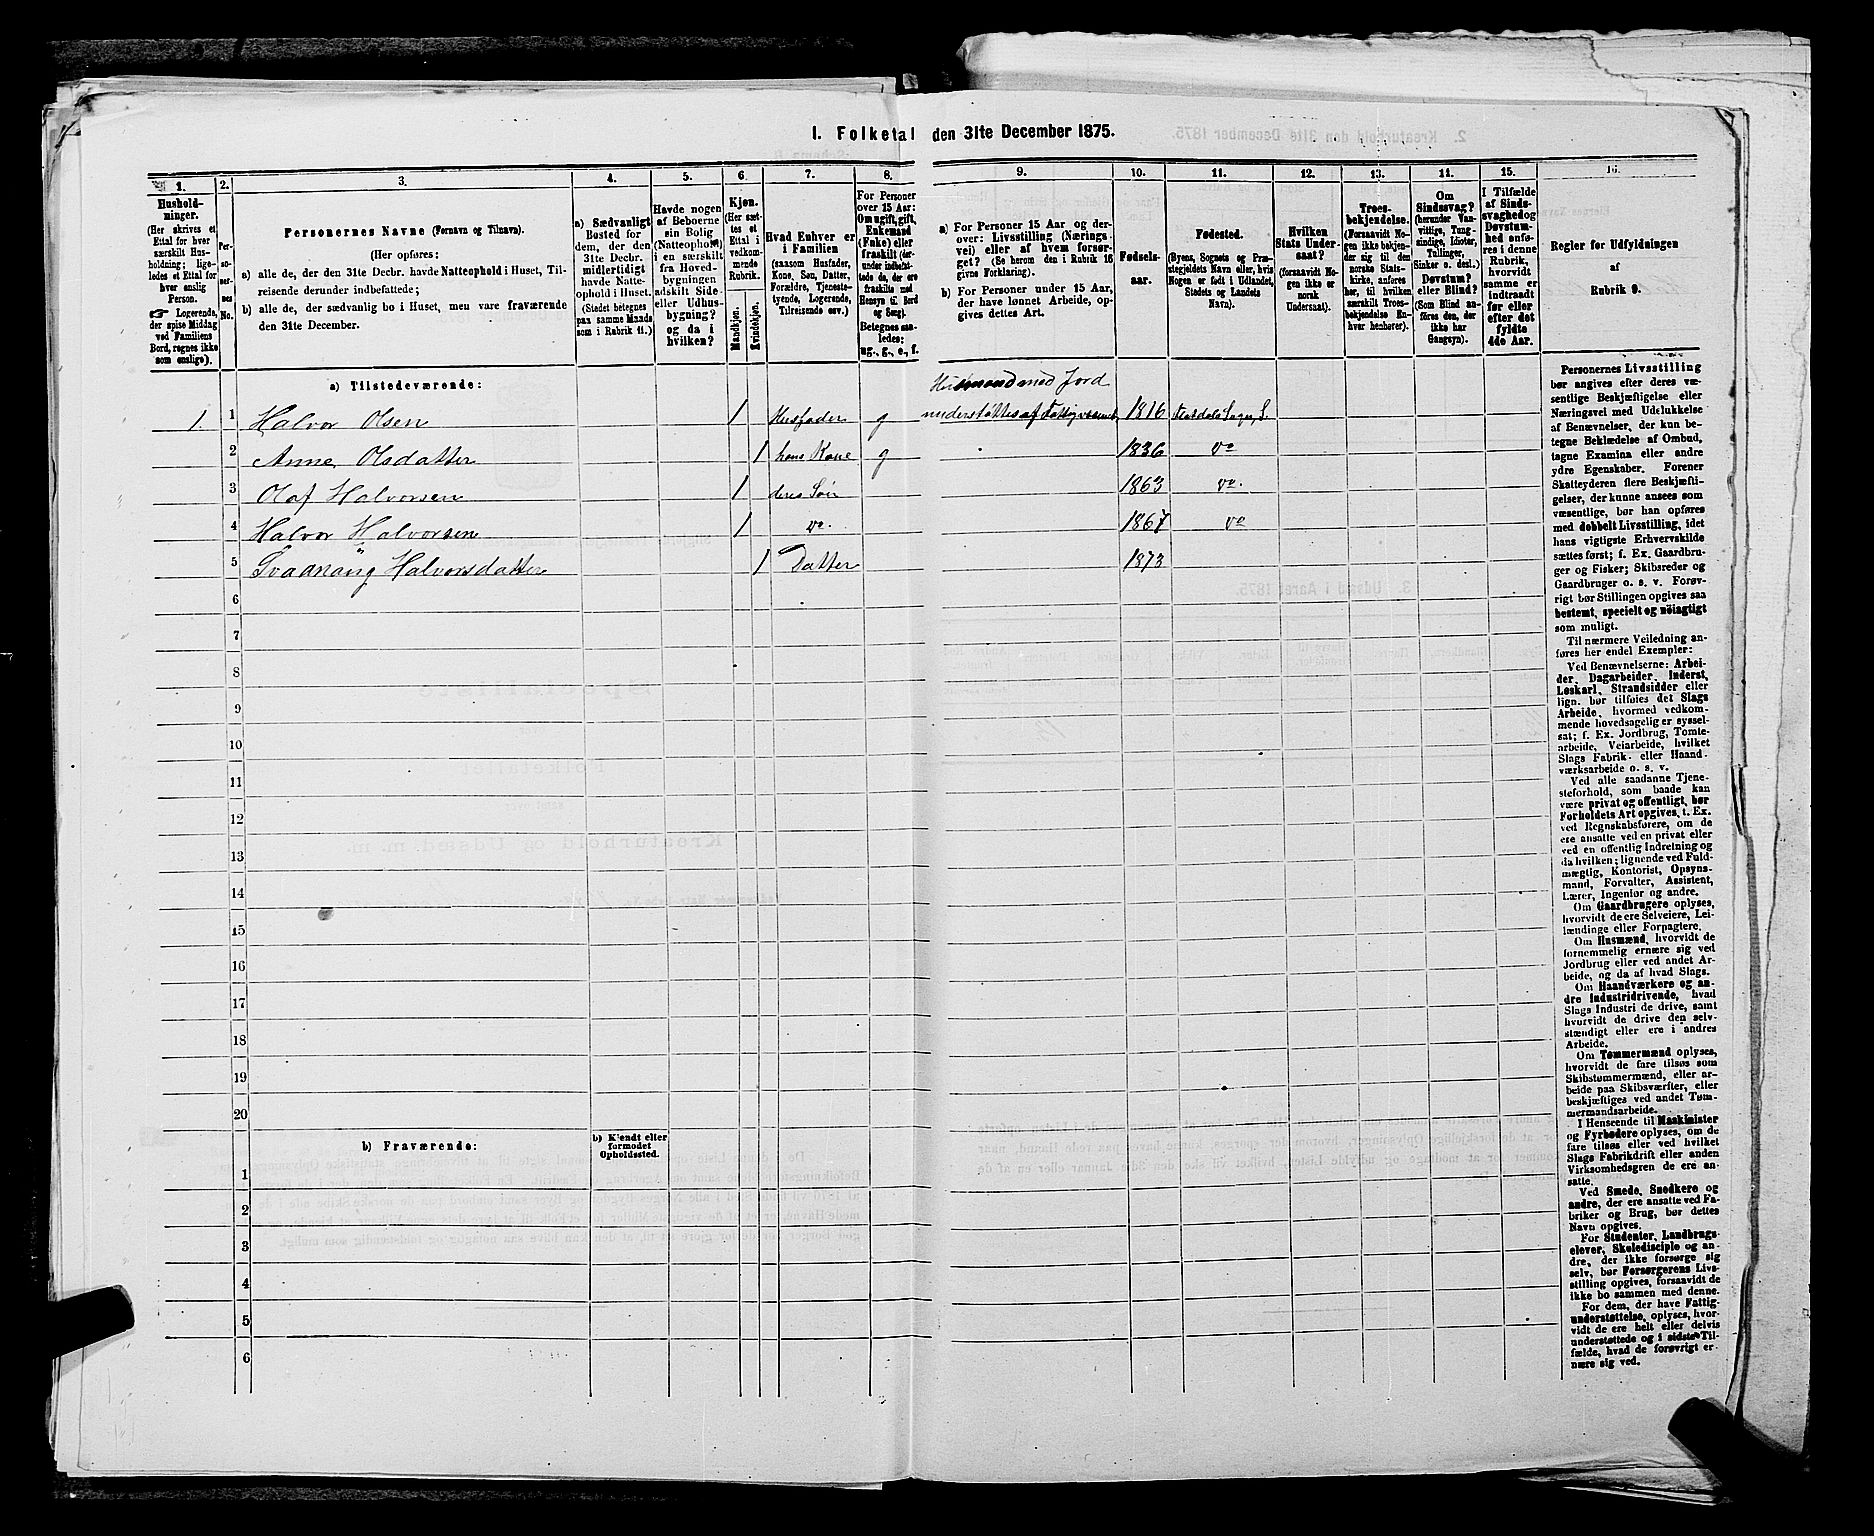 1. Folketal den 31te December 1875.
1. 2. 3. 4. 5. 6. 7. 8. 9. 10. 11. 12. 13. 14. 15. 16.
Hushold-
ninger.
(Her skrives et
Ettal for hver
særskilt Hus-
holdning; lige-
ledes et Ettal for
hver enslig
Person.
☛ Logerende,
der spise Middag
ved Familiens
Bord, regnes ikke
som enslige).
Per-
so-
ner-
nes
No.
Personernes Navne (Fornavn og Tilnavn).
(Her opføres:
a) alle de, der den 31te Decbr. havde Natteophold i Huset, Til-
reisende derunder indbefattede;
b) alle de, der sædvanlig bo i Huset, meu vare fraværende
den 31te December.
a) Sædvanligt
Bosted for
dem, der den
31te Decbr.
midlertidigt
havde Natte-
ophold i Huset.
(Stedet betegnes
paa samme Maade
som i Rubrik 11.)
Havde nogen
af Beboerne
sin Bolig
(Natteophold)
i en særskilt
fra Hoved-
bygningen
adskilt Side-
eller Udhus-
bygning?
og da i
hvilken?
Kjøn.
(Her sæt-
tes et
Ettal i
vedkom-
mende
Rubrik.
Mandkjøn.
Kvindekjøn.
Hvad Enhver er
i Familien
(saasom Husfader,
Kone, Søn, Datter,
Forældre, Tjeneste-
tyende, Logerende,
Tilreisende osv.)
For Personer
over 15 Aar:
Om ugift, gift,
Enkemand
(Enke) eller
fraskilt (der-
under indbefat-
tede de, der ere
fraskilte med
Hensyn til Bord
og Seng).
Betegnes saa-
ledes:
ug., g., e., f.
a) For Personer 15 Aar og der-
over: Livsstilling (Nærings-
vei) eller af hvem forsør-
get? (Se herom den i Rubrik 16
givne Forklaring).
b) For Personer under 15 Aar,
der have lønnet Arbeide, op-
gives dettes Art.
Fødsels-
aar.
Fødested.
(Byens, Sognets og Præ-
stegjeldets Navn eller, hvis
Nogen er født i Udlandet,
Stedets og Landets
Navn).
Hvilken
Stats Under-
saat?
(forsaavidt No-
gen ikke er
norsk
Undersaat).
Troes-
bekjendelse.
(Forsaavidt No-
gen ikke bekjen-
der sig til den
norske Stats-
kirke, anføres
her, til hvilken
særskilt Troes-
bekjendelse En-
hver henhører).
Om
Sindssvag?
(herunder Van-
vittige, Tung-
sindige, Idioter,
Tullinger,
Sinker o. desl.)
Døvstum?
eller Blind?
(Som Blind an-
føres den, der
ikke har
Gangsyn).
I Tilfælde
af Sinds-
svaghed og
Døvstum-
hed anfø-
res i denne
Rubrik,
hvorvidt
samme er
indtraadt
før eller
efter det
fyldte
4de Aar.
Regler før Udfyldningen
af
Rubrik 9.
a) Tilstedeværende:
Husmand med Jord
1 1 Halvor Olsen 1 Husfader g understøttes af Fattigvæsenet 1816
2 Anne Olsdatter 1 hans Kone g 1836 do
3 Olaf Halvorsen 1 deres Søn 1863 do.
4 Halvor Halvorsen 1 do. 1867 do
5 Svaanaug Halvorsdatter 1 Datter 1873
6
7
8
9
10
11
12
13
14
15
16
17
18
19
20
b) Fraværende:
b) Kjendt eller
formodet
Opholdssted.
1
2
3
4
5
6
Personernes Livsstilling
bør angives efter deres væ-
sentlige Beskjæftigelse eller
Næringsvei med Udelukkelse
af Benævnelser, der kun be-
tegne Beklædelse af Ombud,
tagne Examina eller andre
ydre Egenskaber. Forener
Skatteyderen flere Beskjæfti-
gelser, der kunne ansees som
væsentlige, bør han opføres
med dobbelt Livsstilling, idet
hans vigtigste Erhvervskilde
sættes først; f. Ex. Gaardbru-
ger og Fisker; Skibsreder og
Gaardbruger o. s. v. Forøv-
rigt bør Stillingen opgives saa
bestemt, specielt og nöiagtigt
som muligt.
Til nærmere Veiledning an-
føres her endel Exempler:
Ved Benævnelserne: Arbei-
der, Dagarbeider, Inderst,
Løskarl, Strandsidder eller
lign. bør tilføies det Slags
Arbeide, hvormed vedkom-
mende hovedsagelig er syssel-
sat; f. Ex. Jordbrug, Tomte-
arbeide, Veiarbeide, hvilket
Slags Fabrik- eller Haand-
værksarbeide o. s. v.
Ved alle saadanne Tjene-
steforhold, som baade kan
være privat og offentligt, bør
Forholdets Art opgives, t. Ex.
ved Regnskabsførere, om de
ere ansatte ved en privat eller
ved en offentlig Indretning og
da hvilken; lignende ved Fuld-
mægtig, Kontorist, Opsyns-
mand, Forvalter, Assistent,
Lærer, Ingeniør og andre.
Om Gaardbrugere oplyses,
hvorvidt de ere Selveiere, Lei-
lændinge eller Forpagtere.
Om Husmænd, hvorvidt de
fornemmelig ernære sig ved
Jordbrug eller ved andet Ar-
beide, og da af hvad Slags.
Om Haandværkere og an-
dre Industridrivende, hvad
Slags Industri de drive, samt
hvorvidt de drive den selv-
stændigt eller ere i andres
Arbeide.
Om Tømmermænd oplyses,
hvorvidt de fare tilsøs som
Skibstømmermænd, eller ar-
beide paa Skibsværfter, eller
beskjæftiges ved andet Tøm-
mermandsarbeide.
I Henseende til Maskinister
og Fyrbødere oplyses, om de
fare tilsøs eller ved hvilket
Slags Fabrikdrift eller anden
Virksomhedsgren de ere an-
satte.
Ved Smede, Snedkere og
andre, der ere ansatte ved Fa-
briker og Brug, bør dettes
Navn opgives.
For Studenter, Landbrugs-
elever, Skoledisciple og an-
dre, der ikke forsørge sig
selv, bør Forsørgerens Livs-
stilling opgives, forsaavidt de
ikke bo sammen med denne.
For dem, der have Fattig-
understøttelse, oplyses, hvor-
vidt de ere helt eller delvis
understøttede og i sidste Til-
fælde, hvad de forøvrigt er-
nære sig ved.